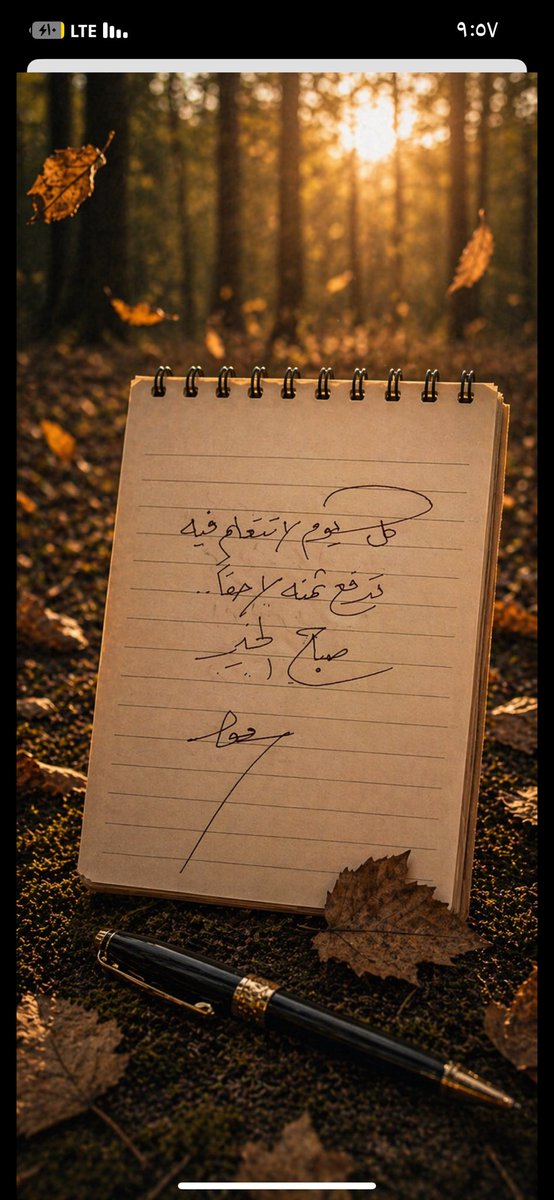 LTE
٩:٥٧
كل يوم لا تتعلم فيه
تدفع ثمنه لاحقاً..
صباح الخير